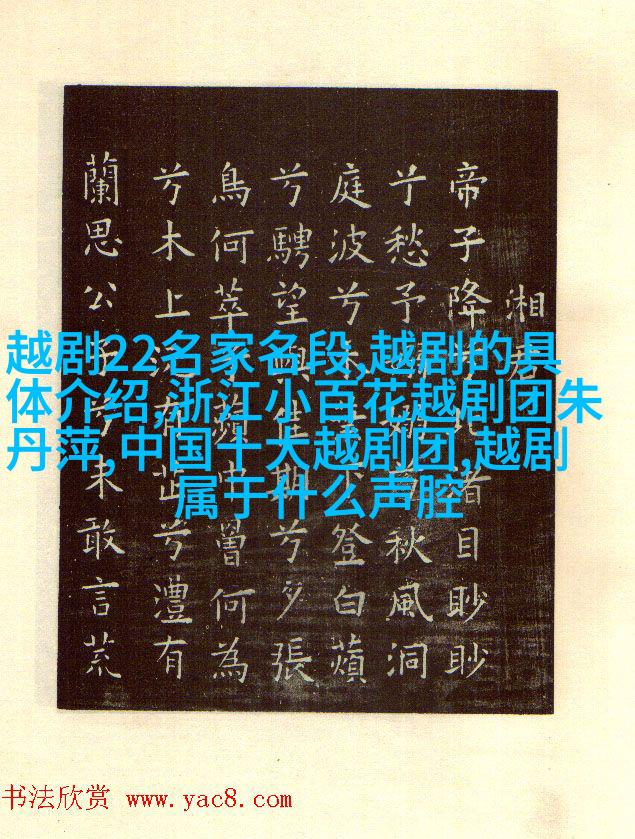 越剧22名家名段,越剧的具
体介绍,浙江小百花越剧团朱
丹萍,中国十大越剧团,越剧
属于什么声腔
湘
帝子降兮北渚目眇眇
兮愁予嫋嫋兮秋風洞
庭波兮木葉下登白蘋
兮騁望與佳期兮夕張
鳥何萃兮蘋中罾何為
兮木上沅有芷兮澧有
蘭思公子兮未敢言荒
书法欣赏 www.yac8.com